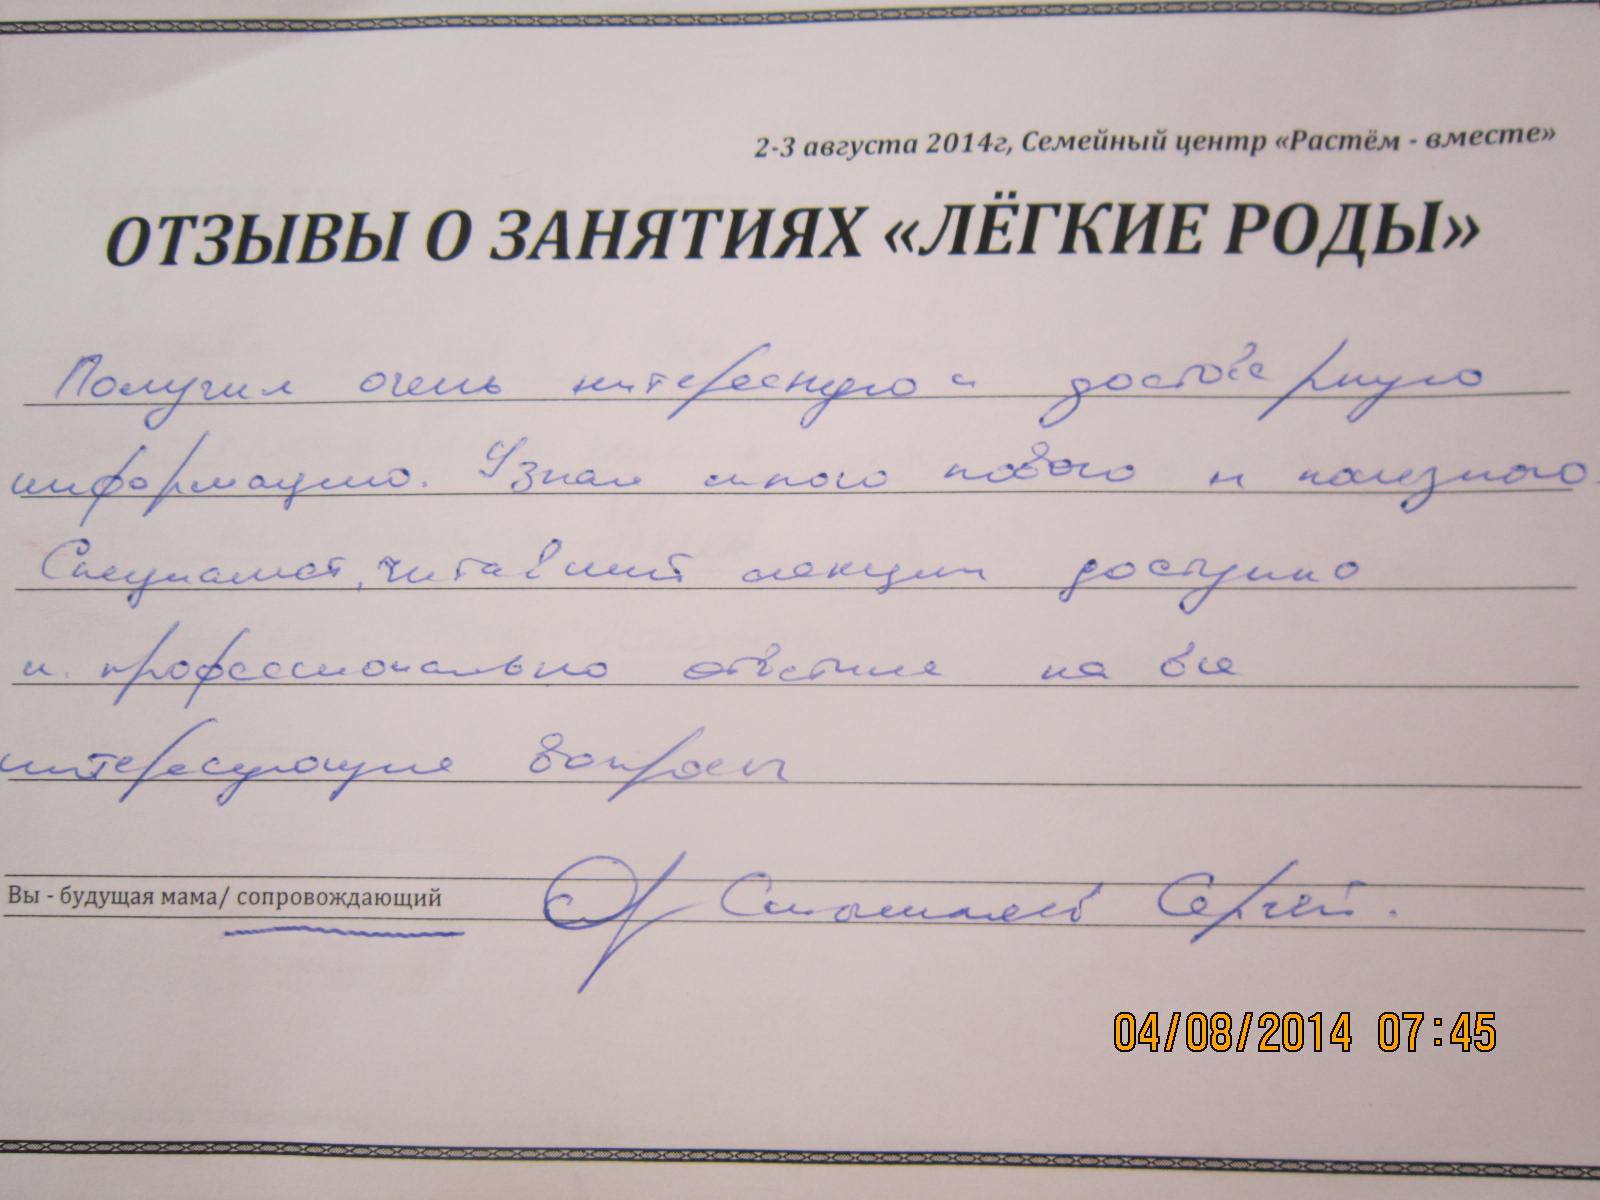 2-3 августа 2014г, Семейный центр «Растём - вместе»
ОТЗЫВЫ О ЗАНЯТИЯХ «ЛЁГКИЕ РОДЫ»
Получил очень интересную и достоверную
информацию. Узнал много нового и полезного.
Специалист, читавший лекции доступно
и профессионально ответил на все
интересующие вопросы
Вы - будущая мама/ сопровождающий Сергей.
04/08/2014 07:45